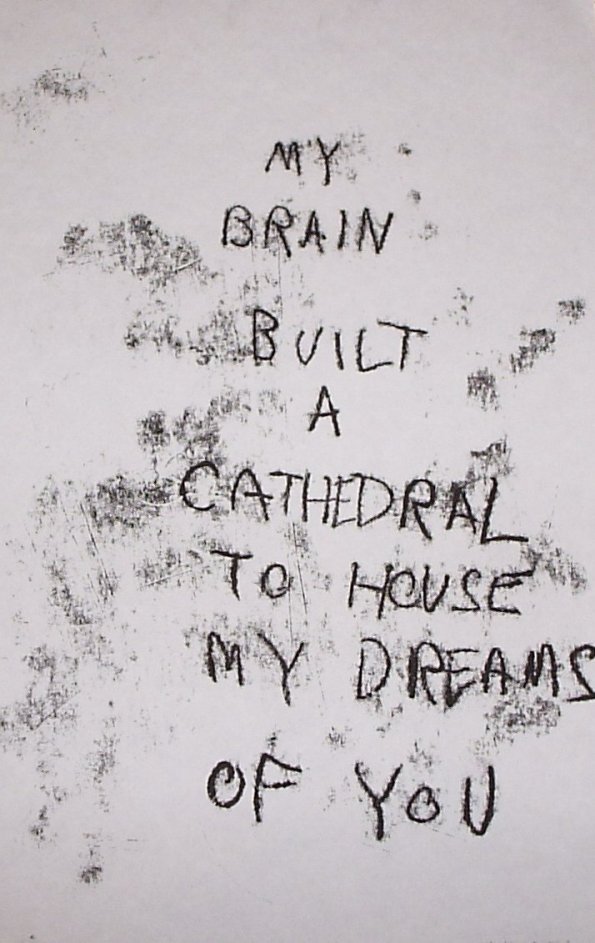 MY
BRAIN
BUILT
A
CATHEDRAL
TO HOUSE
MY DREAMS
OF YOU